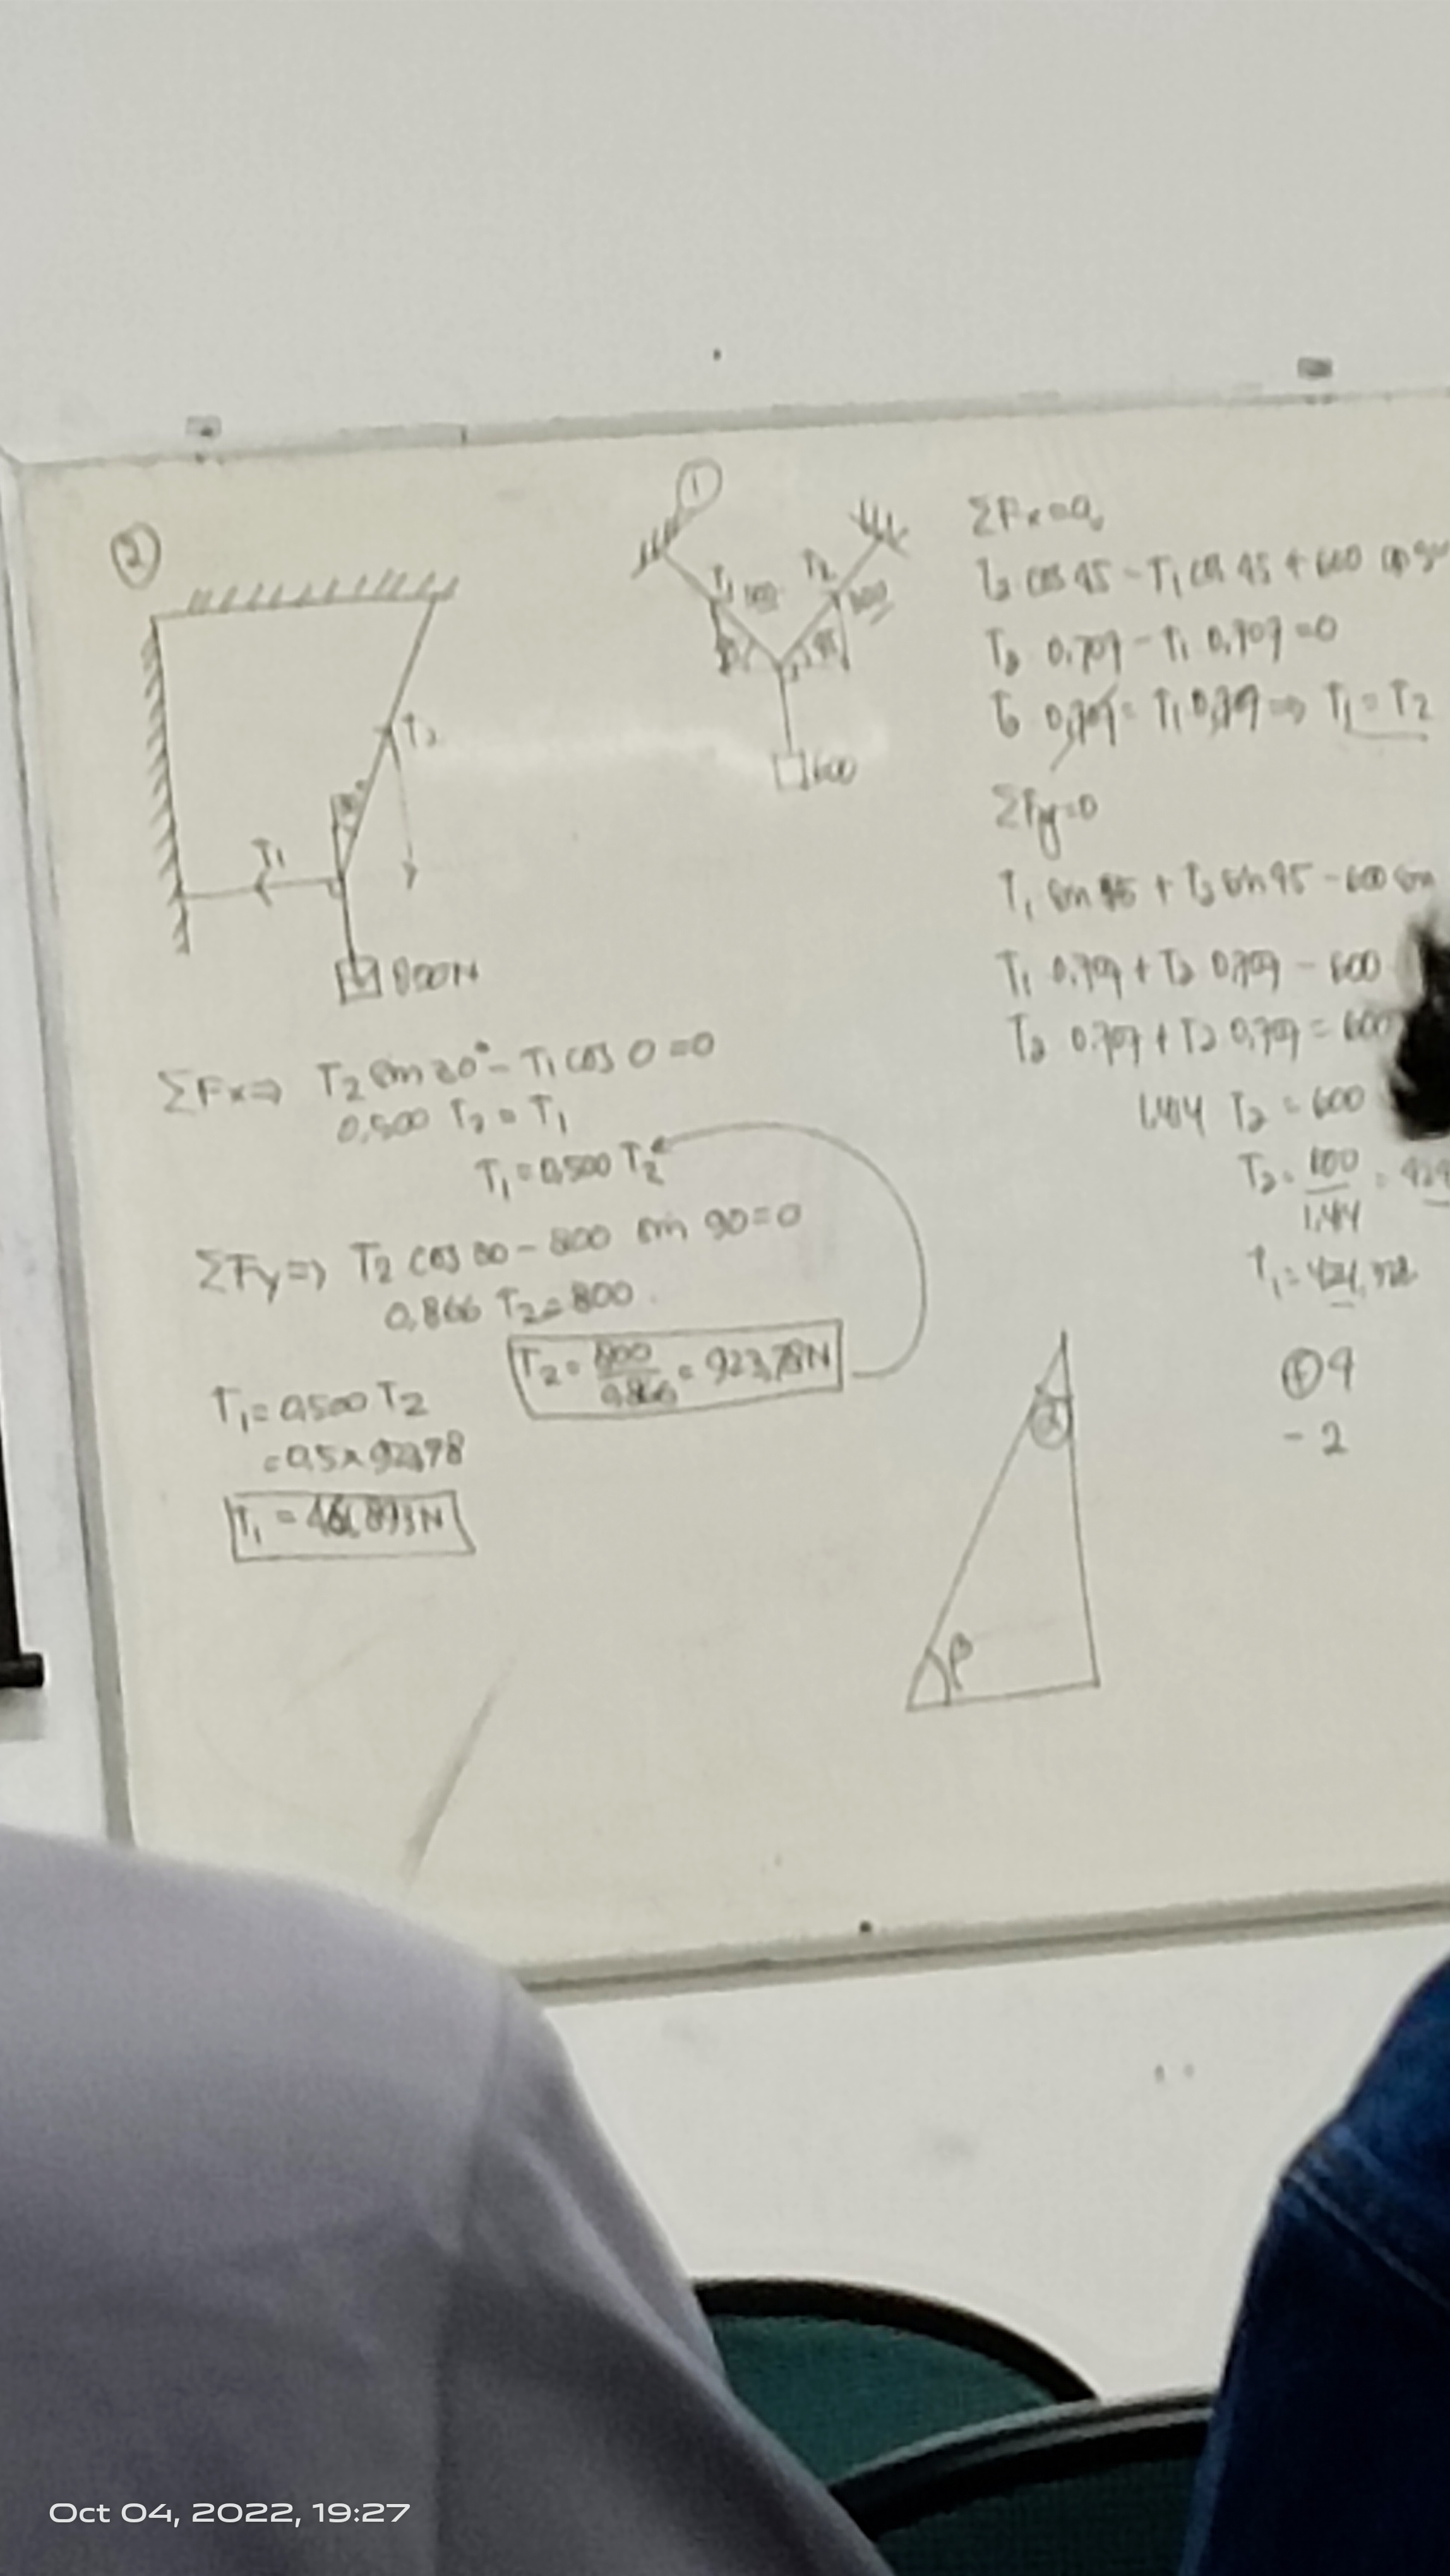 ②
T2
T1
800N
ΣFx⇒ T2 sin 30° - T1 cos 0 = 0
0,500 T2 = T1
T1 = 0,500 T2
ΣFy⇒ T2 cos 30 - 800 sin 90 = 0
0,866 T2 = 800
T2 = 800/0,866 = 923,78N
T1 = 0,500 T2
= 0,5 x 923,78
T1 = 461,893N
①
T1
T2
600
ΣFx = 0
T2 cos 45 - T1 cos 45 + 600
T2 0,707 - T1 0,707 = 0
T2 0,707 = T1 0,707 ⇒ T1 = T2
ΣFy = 0
T1 sin 45 + T2 sin 45 - 600 sin
T1 0,707 + T2 0,707 - 600
T2 0,707 + T2 0,707 = 600
T2 = 600
T2 =
T1 =
- 2
β
Oct 04, 2022, 19:27